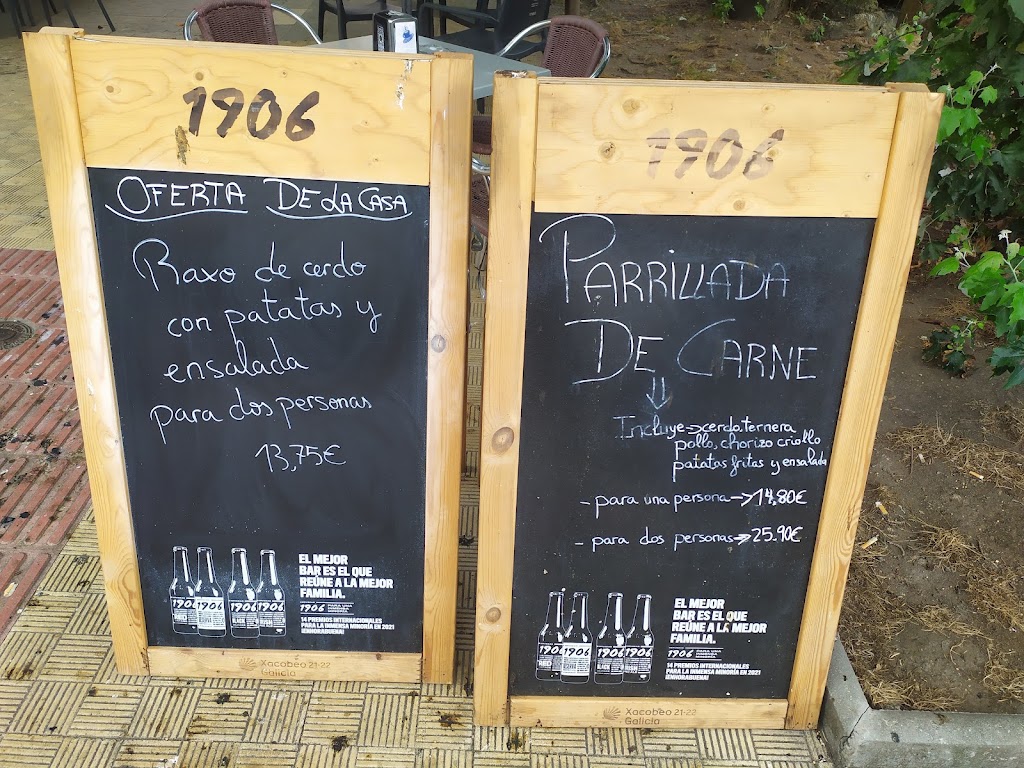 1906
OFERTA DE LA CASA
Raxo de cerdo
con patatas y
ensalada
para dos personas
13,75€
EL MEJOR
BAR ES EL QUE
REÚNE A LA MEJOR
FAMILIA.
1906 PARA UNA INMENSA MINORÍA
14 PREMIOS INTERNACIONALES
PARA LA INMENSA MINORÍA EN 2021
¡ENHORABUENA!
1906
1906
1906
1906
Xacobeo 21·22
Galicia
1906
PARRILLADA
DE CARNE
Incluye→cerdo.ternera
pollo, chorizo criollo
patatas fritas y ensalada
- para una persona→14,80€
- para dos personas→25.90€
EL MEJOR
BAR ES EL QUE
REÚNE A LA MEJOR
FAMILIA.
1906 PARA UNA INMENSA MINORÍA
14 PREMIOS INTERNACIONALES
PARA LA INMENSA MINORÍA EN 2021
¡ENHORABUENA!
1906
1906
1906
1906
BLACK
Xacobeo 21·22
Galicia